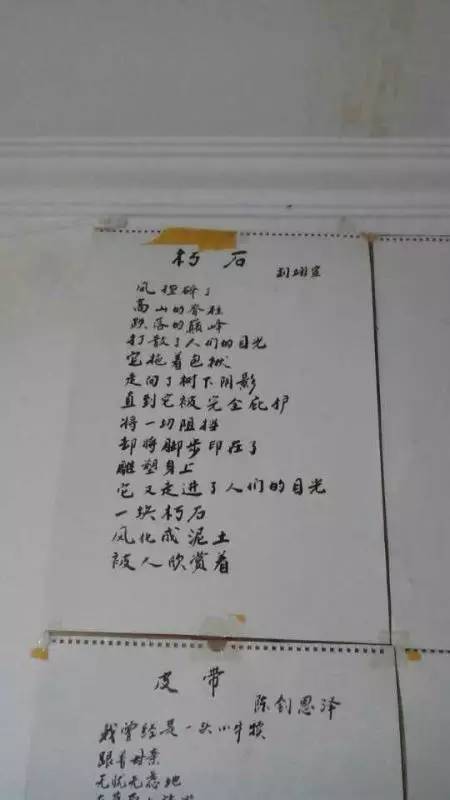 朽石
刘翊宣
风捏碎了
高山的脊柱
跌落的巅峰
打散了人们的目光
它拖着包袱
走向了树下阴影
直到它被完全庇护
将一切阻挡
却将脚步印在了
雕塑身上
它又走进了人们的目光
一块朽石
风化成泥土
被人欣赏着
皮带
陈剑思泽
我曾经是一头小牛犊
跟着母亲
无忧无虑地